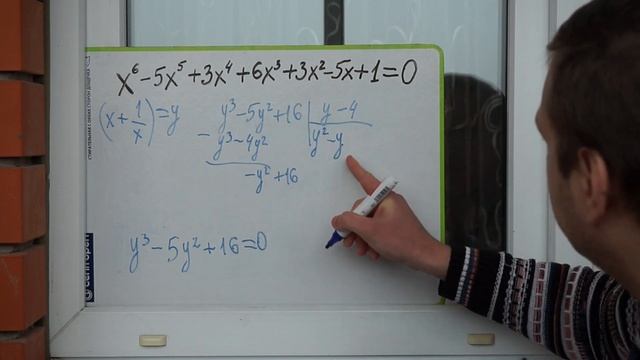 x⁶-5x⁵+3x⁴+6x³+3x²-5x+1=0
(x+1/x)=y
y³-5y²+16 | y-4
- y³-4y² | y²-y
-y²+16
y³-5y²+16=0
centropen